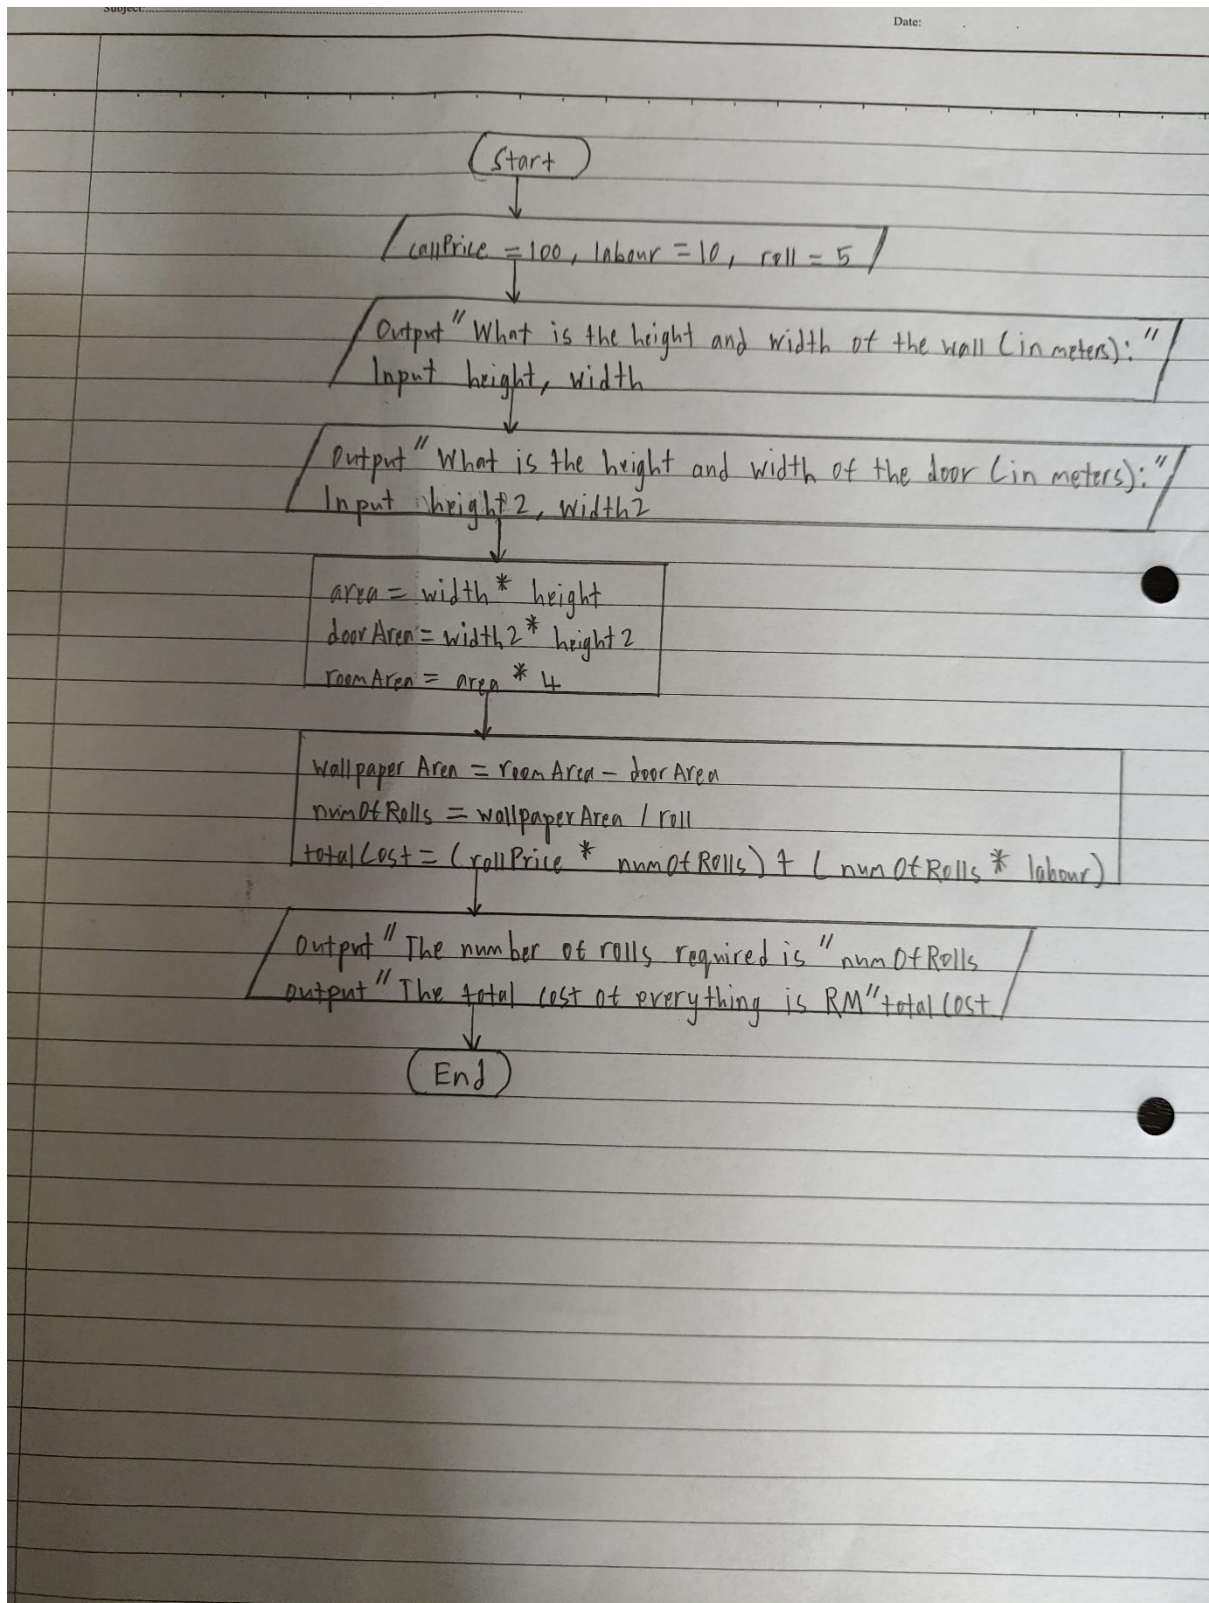 Subject:
Date:
Start
rollPrice = 100, labour = 10, roll = 5
Output "What is the height and width of the wall (in meters):"
Input height, width
Output "What is the height and width of the door (in meters):"
Input height2, width2
area = width * height
doorArea = width2 * height2
roomArea = area * 4
wallpaperArea = roomArea - doorArea
numOfRolls = wallpaperArea / roll
totalCost = (rollPrice * numOfRolls) + (numOfRolls * labour)
Output "The number of rolls required is "numOfRolls
output "The total cost of everything is RM"totalCost
End